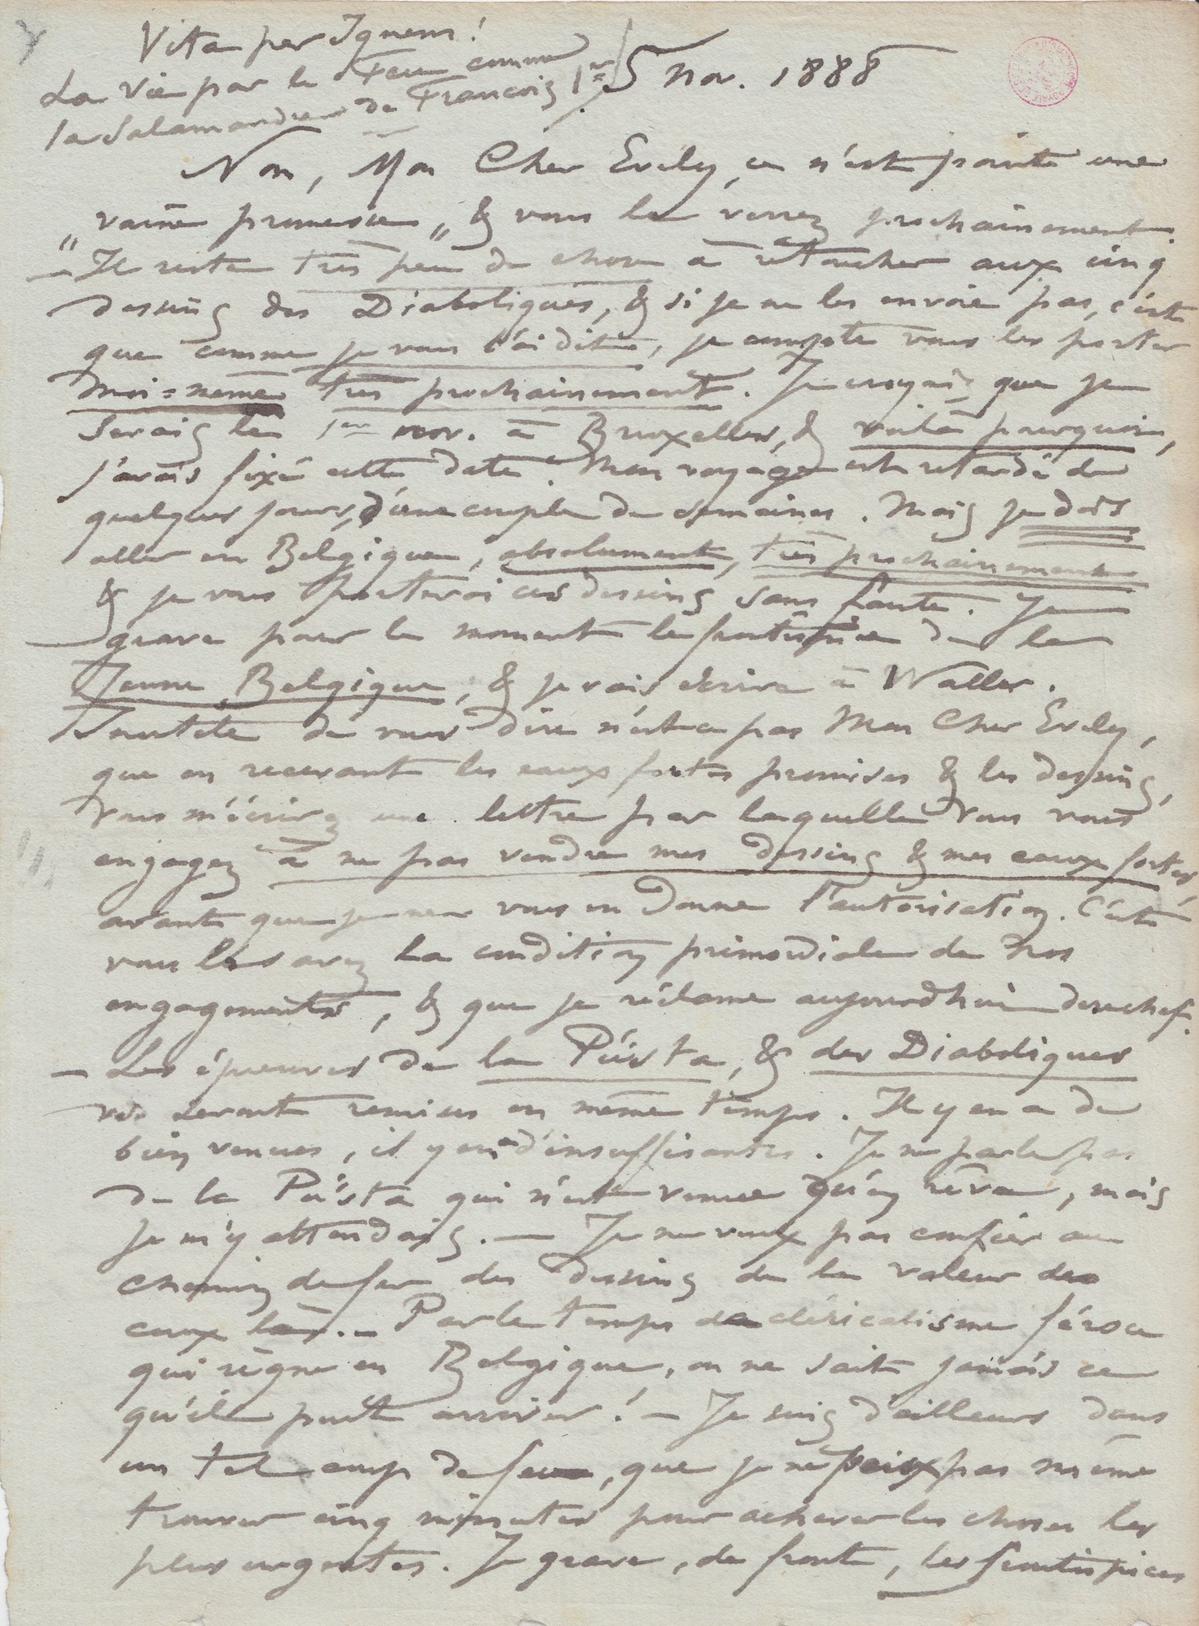 Vita per Ignem!
La Vie par le Feu comme
la Salamandre de François 1er
5 Nov. 1888
Non, Mon Cher Evely, ce n'est point une
„vaine promesse„ & vous le verrez prochainement.
– Il reste très peu de chose à retoucher aux cinq
dessins des Diaboliques, & si je ne les envoie pas, c'est
que comme je vous l'ai dit, je compte vous les porter
moi=même très prochainement. Je croyais que je
serais le 1er nov. à Bruxelles, & voilà pourquoi,
j'avais fixé cette date. Mon voyage est retardé de
quelques jours, d'une couple de semaines. Mais je dois
aller en Belgique, absolument, très prochainement
& je vous porterai ces dessins sans faute. Je
grave pour le moment le frontispice de la
Jeune Belgique, & je vais écrire à Waller.
Inutile de vous dire n'est-ce pas Mon Cher Evely,
que en recevant les eaux fortes promises & les dessins,
vous m'écrirez une lettre par laquelle vous vous
engagez à ne pas vendre mes dessins & mes eaux fortes
avant que je ne vous en donne l'autorisation. C'est
vous le savez la condition primordiale de nos
engagements, & que je réclame aujourd'hui derechef.
– Les épreuves de la Püsta, & des Diaboliques
vs seront remises en même temps. Il y en a de
bien venues, il y en a d'insuffisantes. Je ne parle pas
de la Püsta qui n'est venue qu'en rêve, mais
je m'y attendais. – Je ne veux pas confier au
chemin de fer des dessins de la valeur de
ceux là. – Par le temps de cléricalisme féroce
qui règne en Belgique, on ne sait jamais ce
qu'il peut arriver! – Je suis d'ailleurs dans
un tel coup de feu, que je ne puis pas même
trouver cinq minutes pour achever les choses les
plus urgentes. Je grave, de front, les frontispices